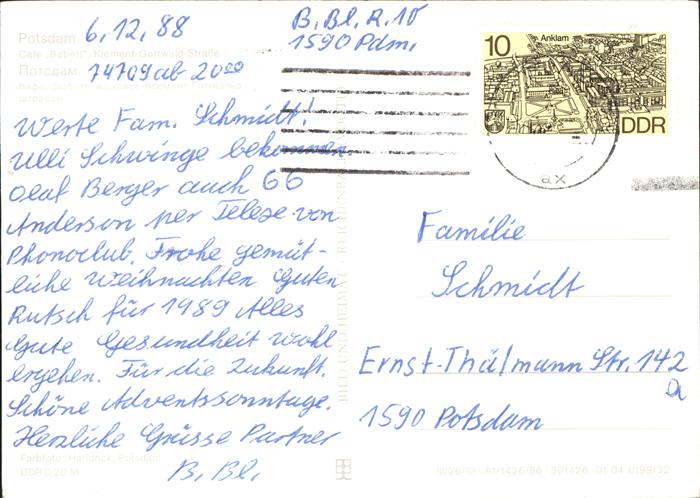 Potsdam
Café „Babett“, Klement-Gottwald-Straße
Потсдам
6.12.88
74709 ab 20 00
B. Bl. R. 10
1590 Pdm.
Werte Fam. Schmidt!
Ulli Schwinge bekommen
Olaf Berger auch 66
Anderson per Telex von
Phonoclub. Frohe gemüt-
liche Weihnachten Guten
Rutsch für 1989 Alles
Gute Gesundheit Wohl
ergehen. Für die Zukunft.
Schöne Adventssonntage.
Herzliche Grüsse Partner
B. Bl.
Farbfoto: Handrick, Potsdam
DDR 0,20 M
BILD UND HEIMAT · REICHENBACH
10 Anklam
DDR
Familie
Schmidt
Ernst-Thälmann Str. 142
a
1590 Potsdam
III/26/13 · A1/1426/86 301426 01 04 0199/32